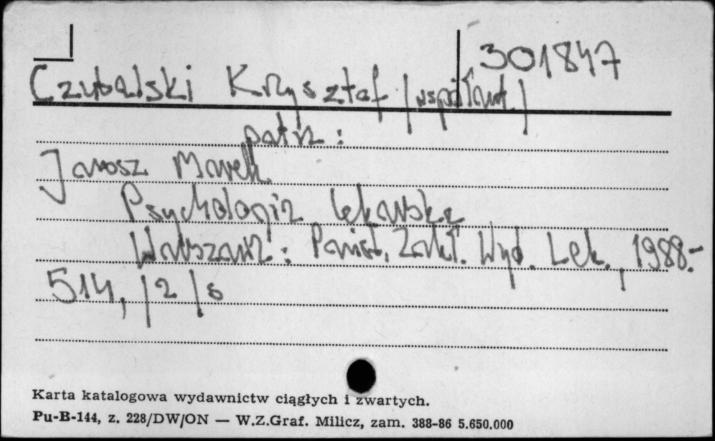 301847
Czubalski Krzysztof /współaut./
patrz:
Jarosz Marek
Psychologia lekarska
Warszawa: Państ. Zakł. Wyd. Lek., 1988.-
514, /2/ s
Karta katalogowa wydawnictw ciągłych i zwartych.
Pu-B-144, z. 228/DW/ON — W.Z.Graf. Milicz, zam. 388-86 5.650.000